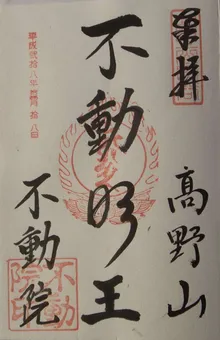 奉拝
高野山
不動明王
不動院
平成弐拾八年
拾八日
不動
院印